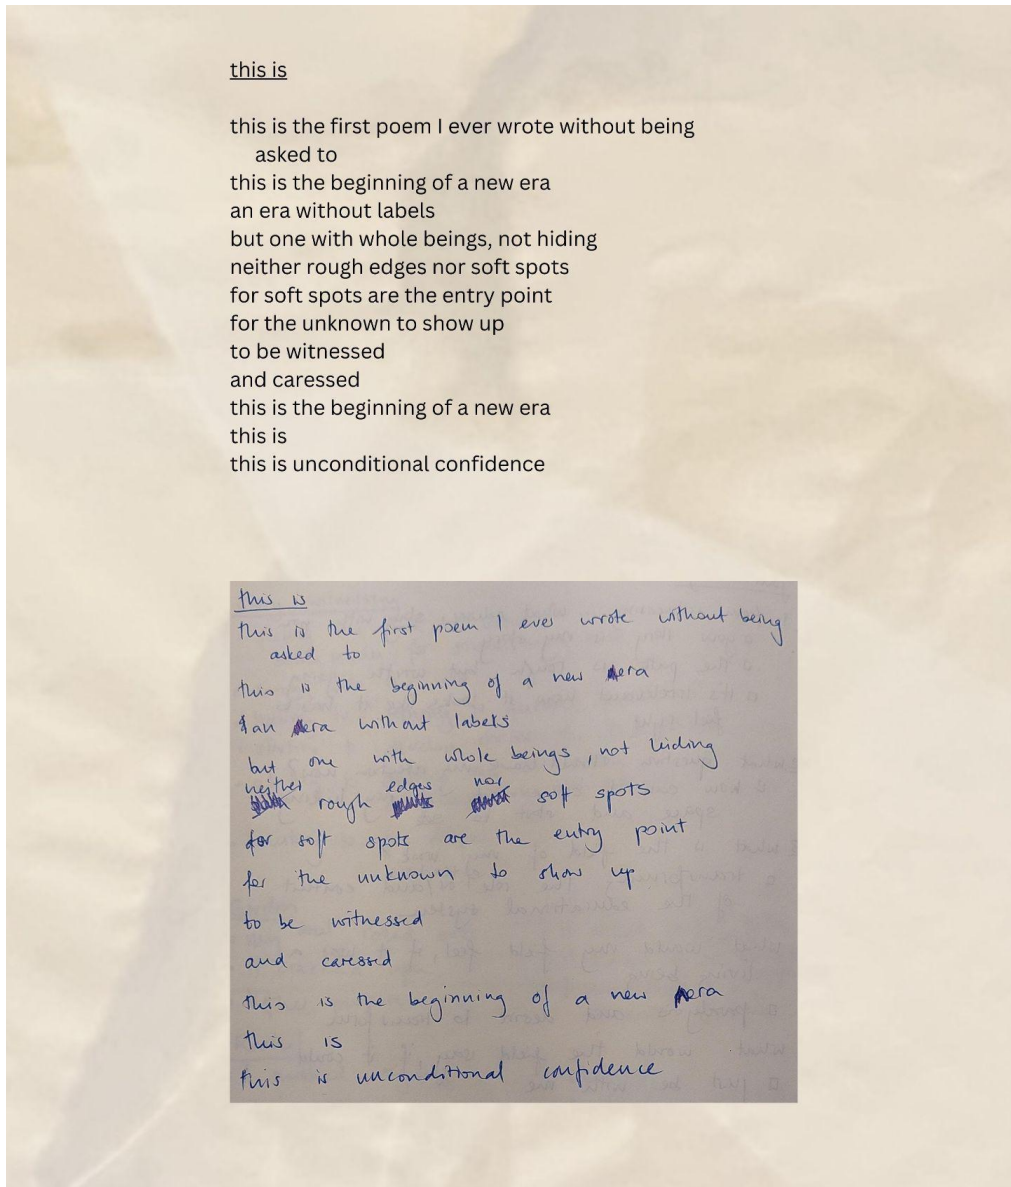 this is
this is the first poem I ever wrote without being
asked to
this is the beginning of a new era
an era without labels
but one with whole beings, not hiding
neither rough edges nor soft spots
for soft spots are the entry point
for the unknown to show up
to be witnessed
and caressed
this is the beginning of a new era
this is
this is unconditional confidence
this is
this is the first poem I ever wrote without being
asked to
this is the beginning of a new era
an era without labels
but one with whole beings, not hiding
neither edges nor
rough soft spots
for soft spots are the entry point
for the unknown to show up
to be witnessed
and caressed
this is the beginning of a new era
this is
this is unconditional confidence